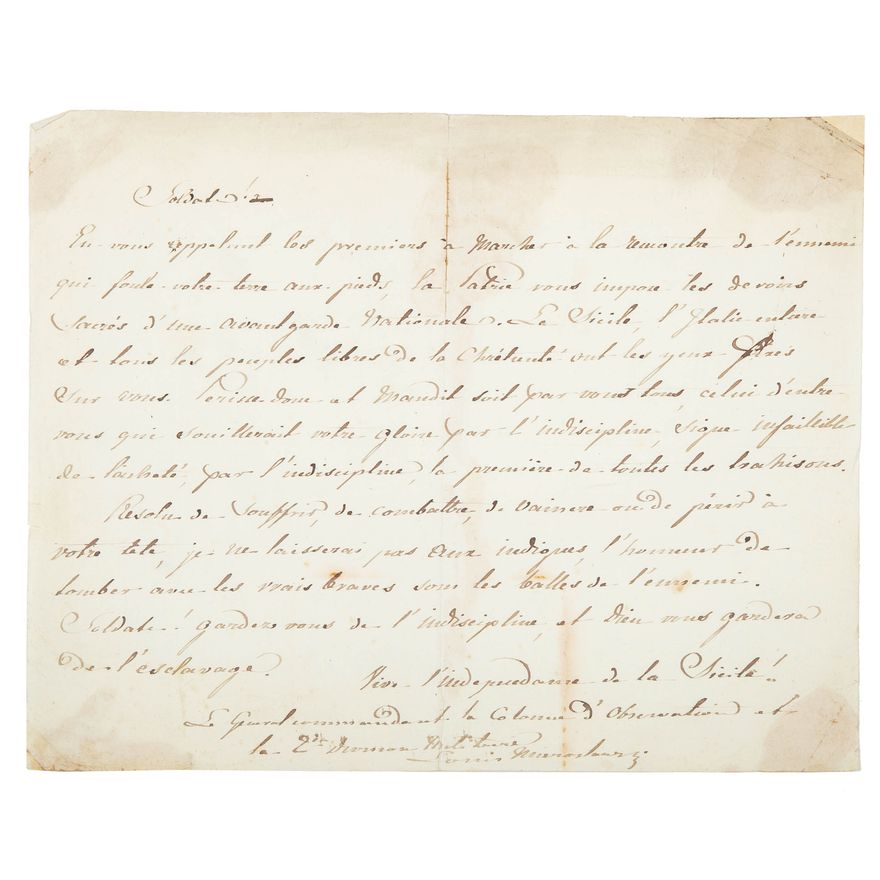 Soldats!
En vous appelant les premiers à marcher à la rencontre de l'ennemi
qui foule votre terre aux pieds, la Patrie vous impose les devoirs
sacrés d'une avant garde Nationale. La Sicile, l'Italie entière
et tous les peuples libres de la Chrétienté ont les yeux fixés
sur vous. Périsse donc et Maudit soit par vous tous, celui d'entre
vous qui souillerait votre gloire par l'indiscipline, signe infaillible
de lacheté, par l'indiscipline, la première de toutes les trahisons.
Résolu de souffrir, de combattre, de vaincre ou de périr à
votre tete, je ne laisserai pas aux indignes, l'honneur de
tomber avec les vrais braves sous les balles de l'ennemi.
Soldats! gardez vous de l'indiscipline, et Dieu vous gardera
de l'esclavage.
Vive l'indépendance de la Sicile!
Le Général commandant la Colonne d'Observation et
la 2de Division Militaire
Louis Mieroslawski